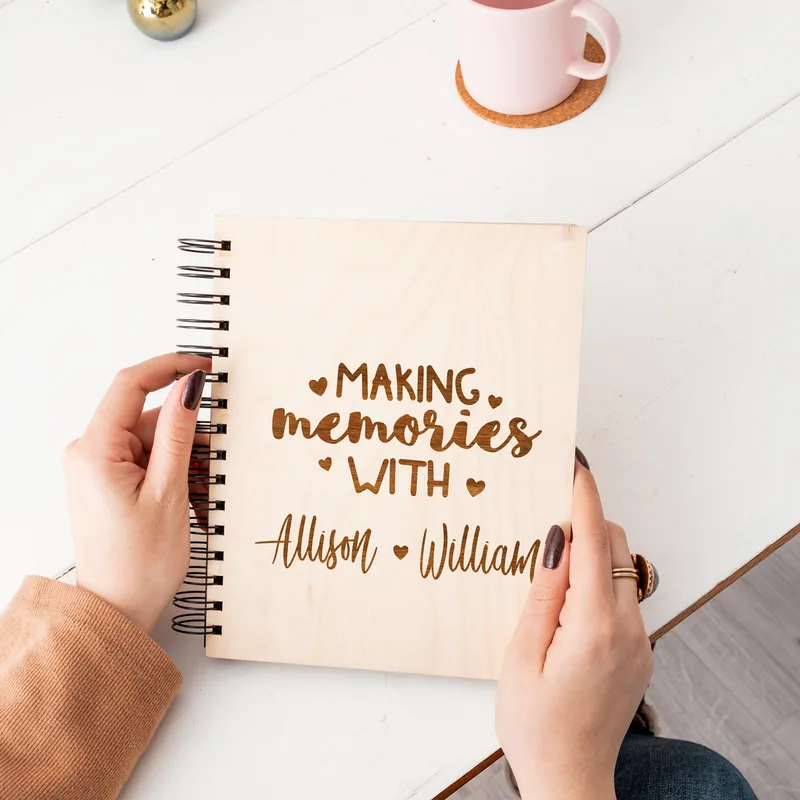 MAKING
memories
WITH
Allison William